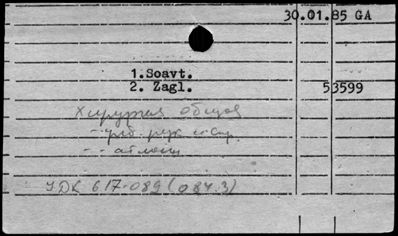 30.01.85 GA
1.Soavt.
2. Zagl. 53599
Хирургия общая
- атласы
УДК 617-089(084.3)